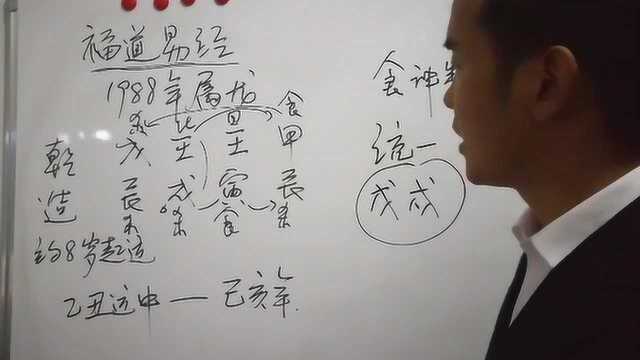 福道易经
1988年属龙
杀 比 日 食
乾造
戊 壬 壬 甲
辰 戌 寅 辰
杀 杀 食 杀
约8岁起运
乙丑运中—己亥年
食神
统一
戊戌